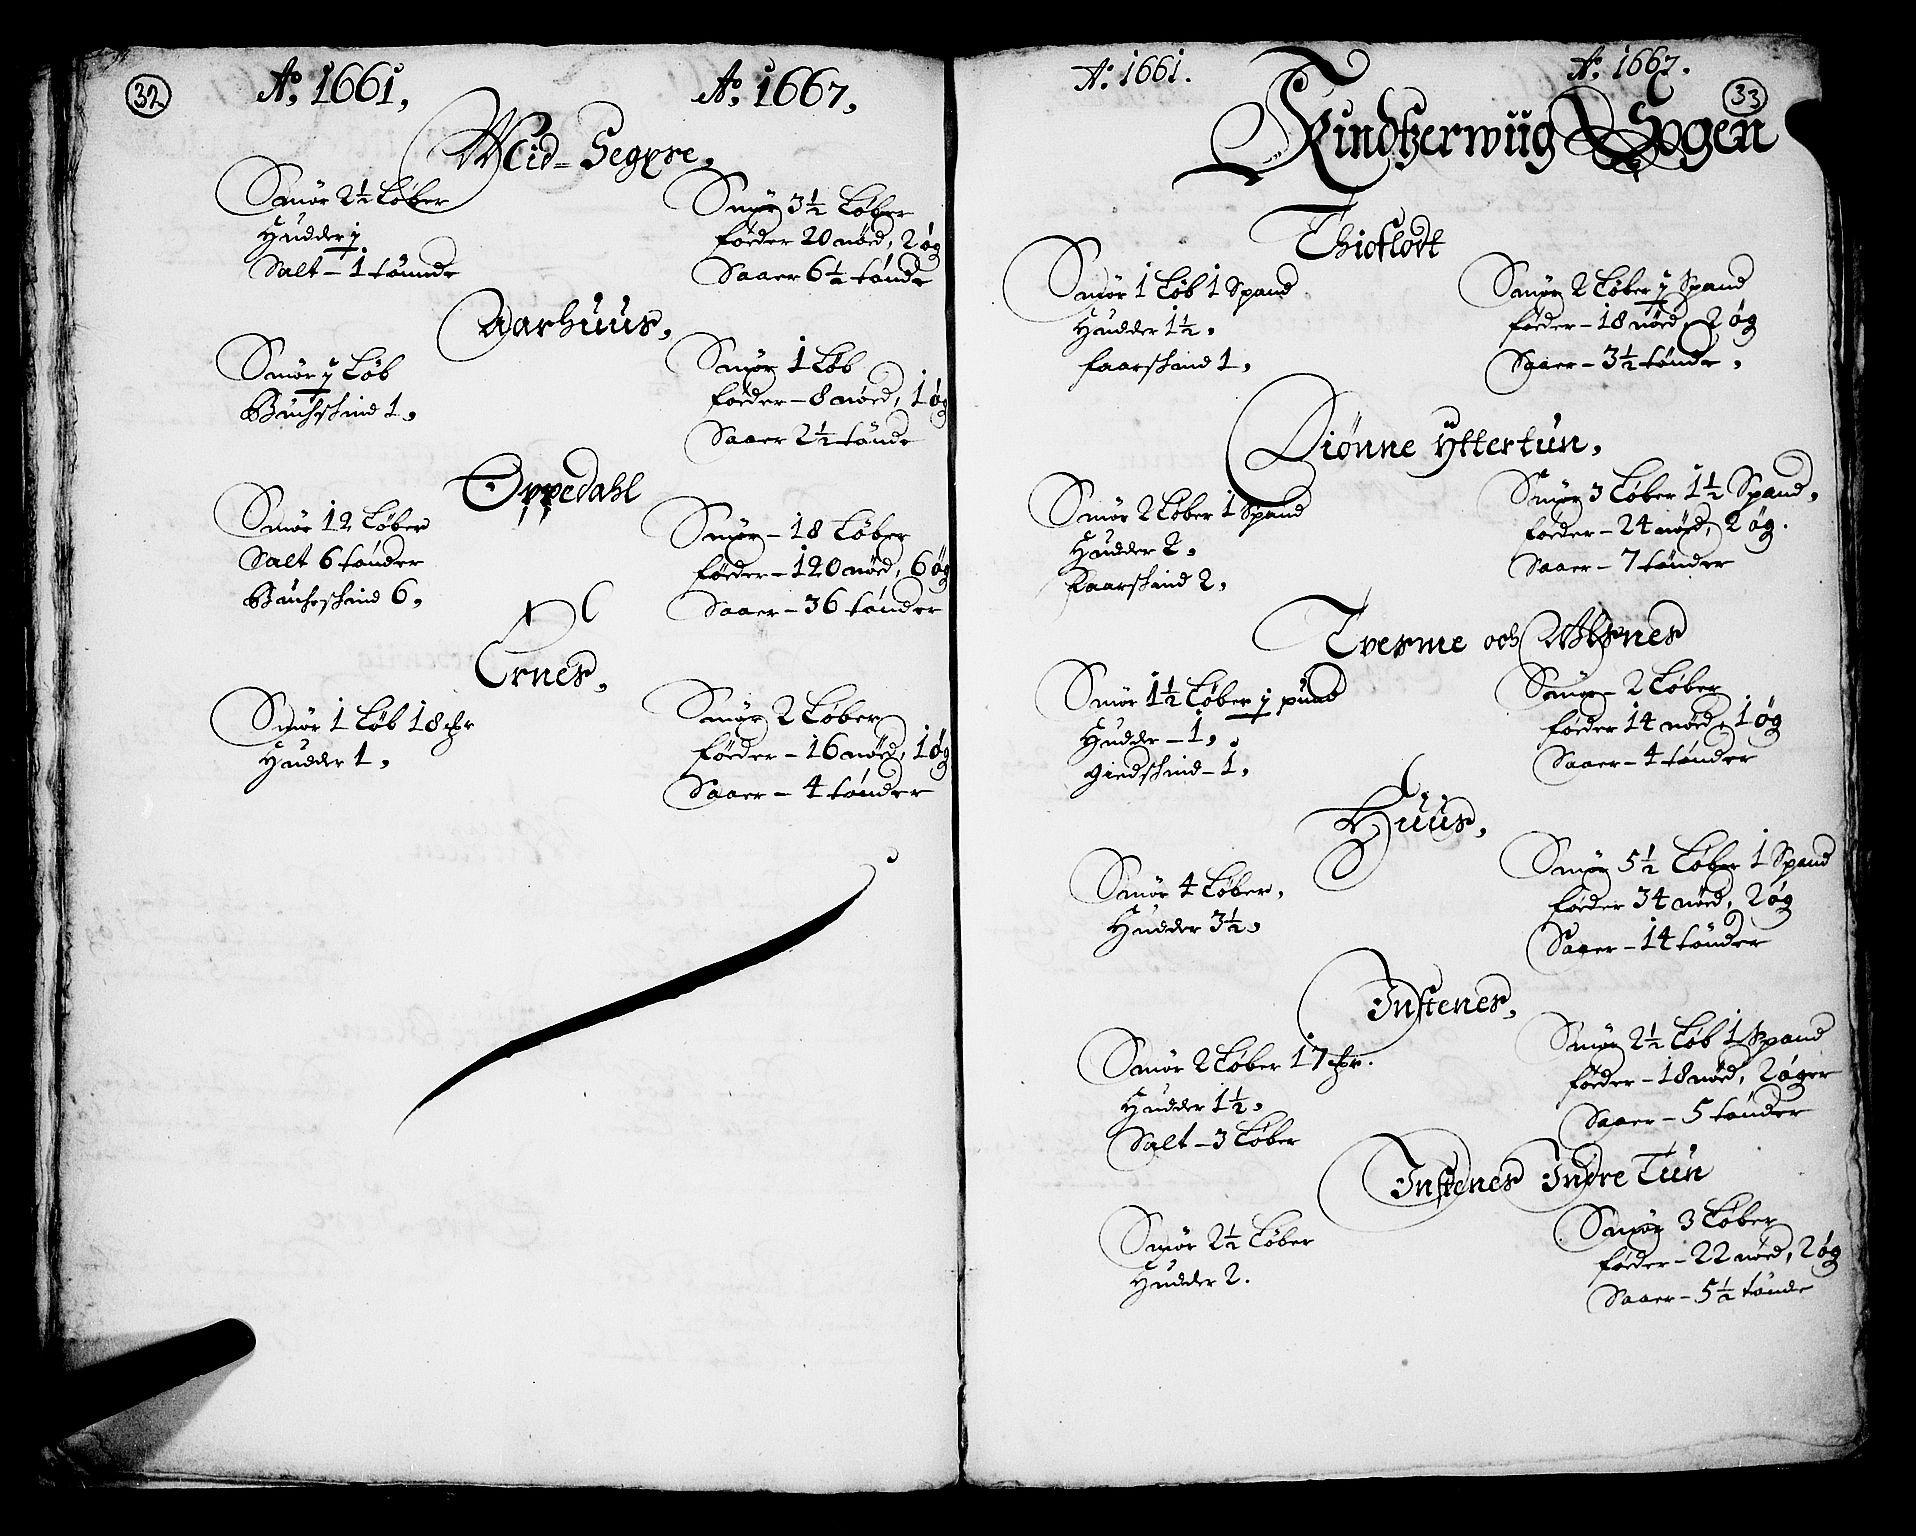 32
Ao. 1661,
Ao. 1667,
Mid-Segpre,
Smör 2½ Løber
Hudder j
Salt - 1 tünnde
Smör 3½ Løber
föeder 20 nöed, 2 øg
Saaer 6½ tønde
Aarhuus,
Smör j Løb
Buchschind 1,
Smör 1 Løb
föeder - 8 nöed, 1 øg
Saaer 2½ tønde
Oppedahl
Smör 12 Løber
Salt 6 tønder
Buchschind 6,
Smör - 18 Løber
föeder - 120 nöed, 6 øg
Saaer - 36 tønder
Ernes,
Smör 1 Løb 18 mkr
Hudder 1,
Smör 2 Løber
föeder - 16 nöed, 1 øg
Saaer - 4 tønder
33
Ao. 1661.
Ao. 1667.
Kindtzerwiig Sogen
Thioflodt
Smör 1 Løb 1 Spand
Hudder 1½,
faarschind 1,
Smör 2 Løber j Spand
föeder - 18 nöed, 2 øg
Saaer - 3½ tønde,
Diønne Yttertun,
Smör 2 Løber 1 Spand
Hudder 2,
faarschind 2,
Smör 3 Løber 1½ Spand,
föeder - 24 nöed, 2 øg.
Saaer - 7 tønder
Tvesme och
Smör 1½ Løber j pund
Hudder - 1,
giedschind - 1,
Smör - 2 Løber
föeder 14 nöed, 1 øg
Saaer - 4 tønder
Huus,
Smör 4 Løber,
Hudder 3½,
Smör 5½ Løber 1 Spand
föeder 34 nöed, 2 øg
Saaer - 14 tønder
Instenes,
Smör 2 Løber 17 mkr.
Hudder 1½,
Salt - 3 Løber
Smör 2½ Løb 1 Spand
föeder - 18 nöed, 2 øger
Saaer - 5 tønder
Instenes Indre Tun
Smör 2½ Løber
Hudder 2.
Smör 3 Løber
föeder - 22 nöed, 2 øg
Saaer - 5½ tønde